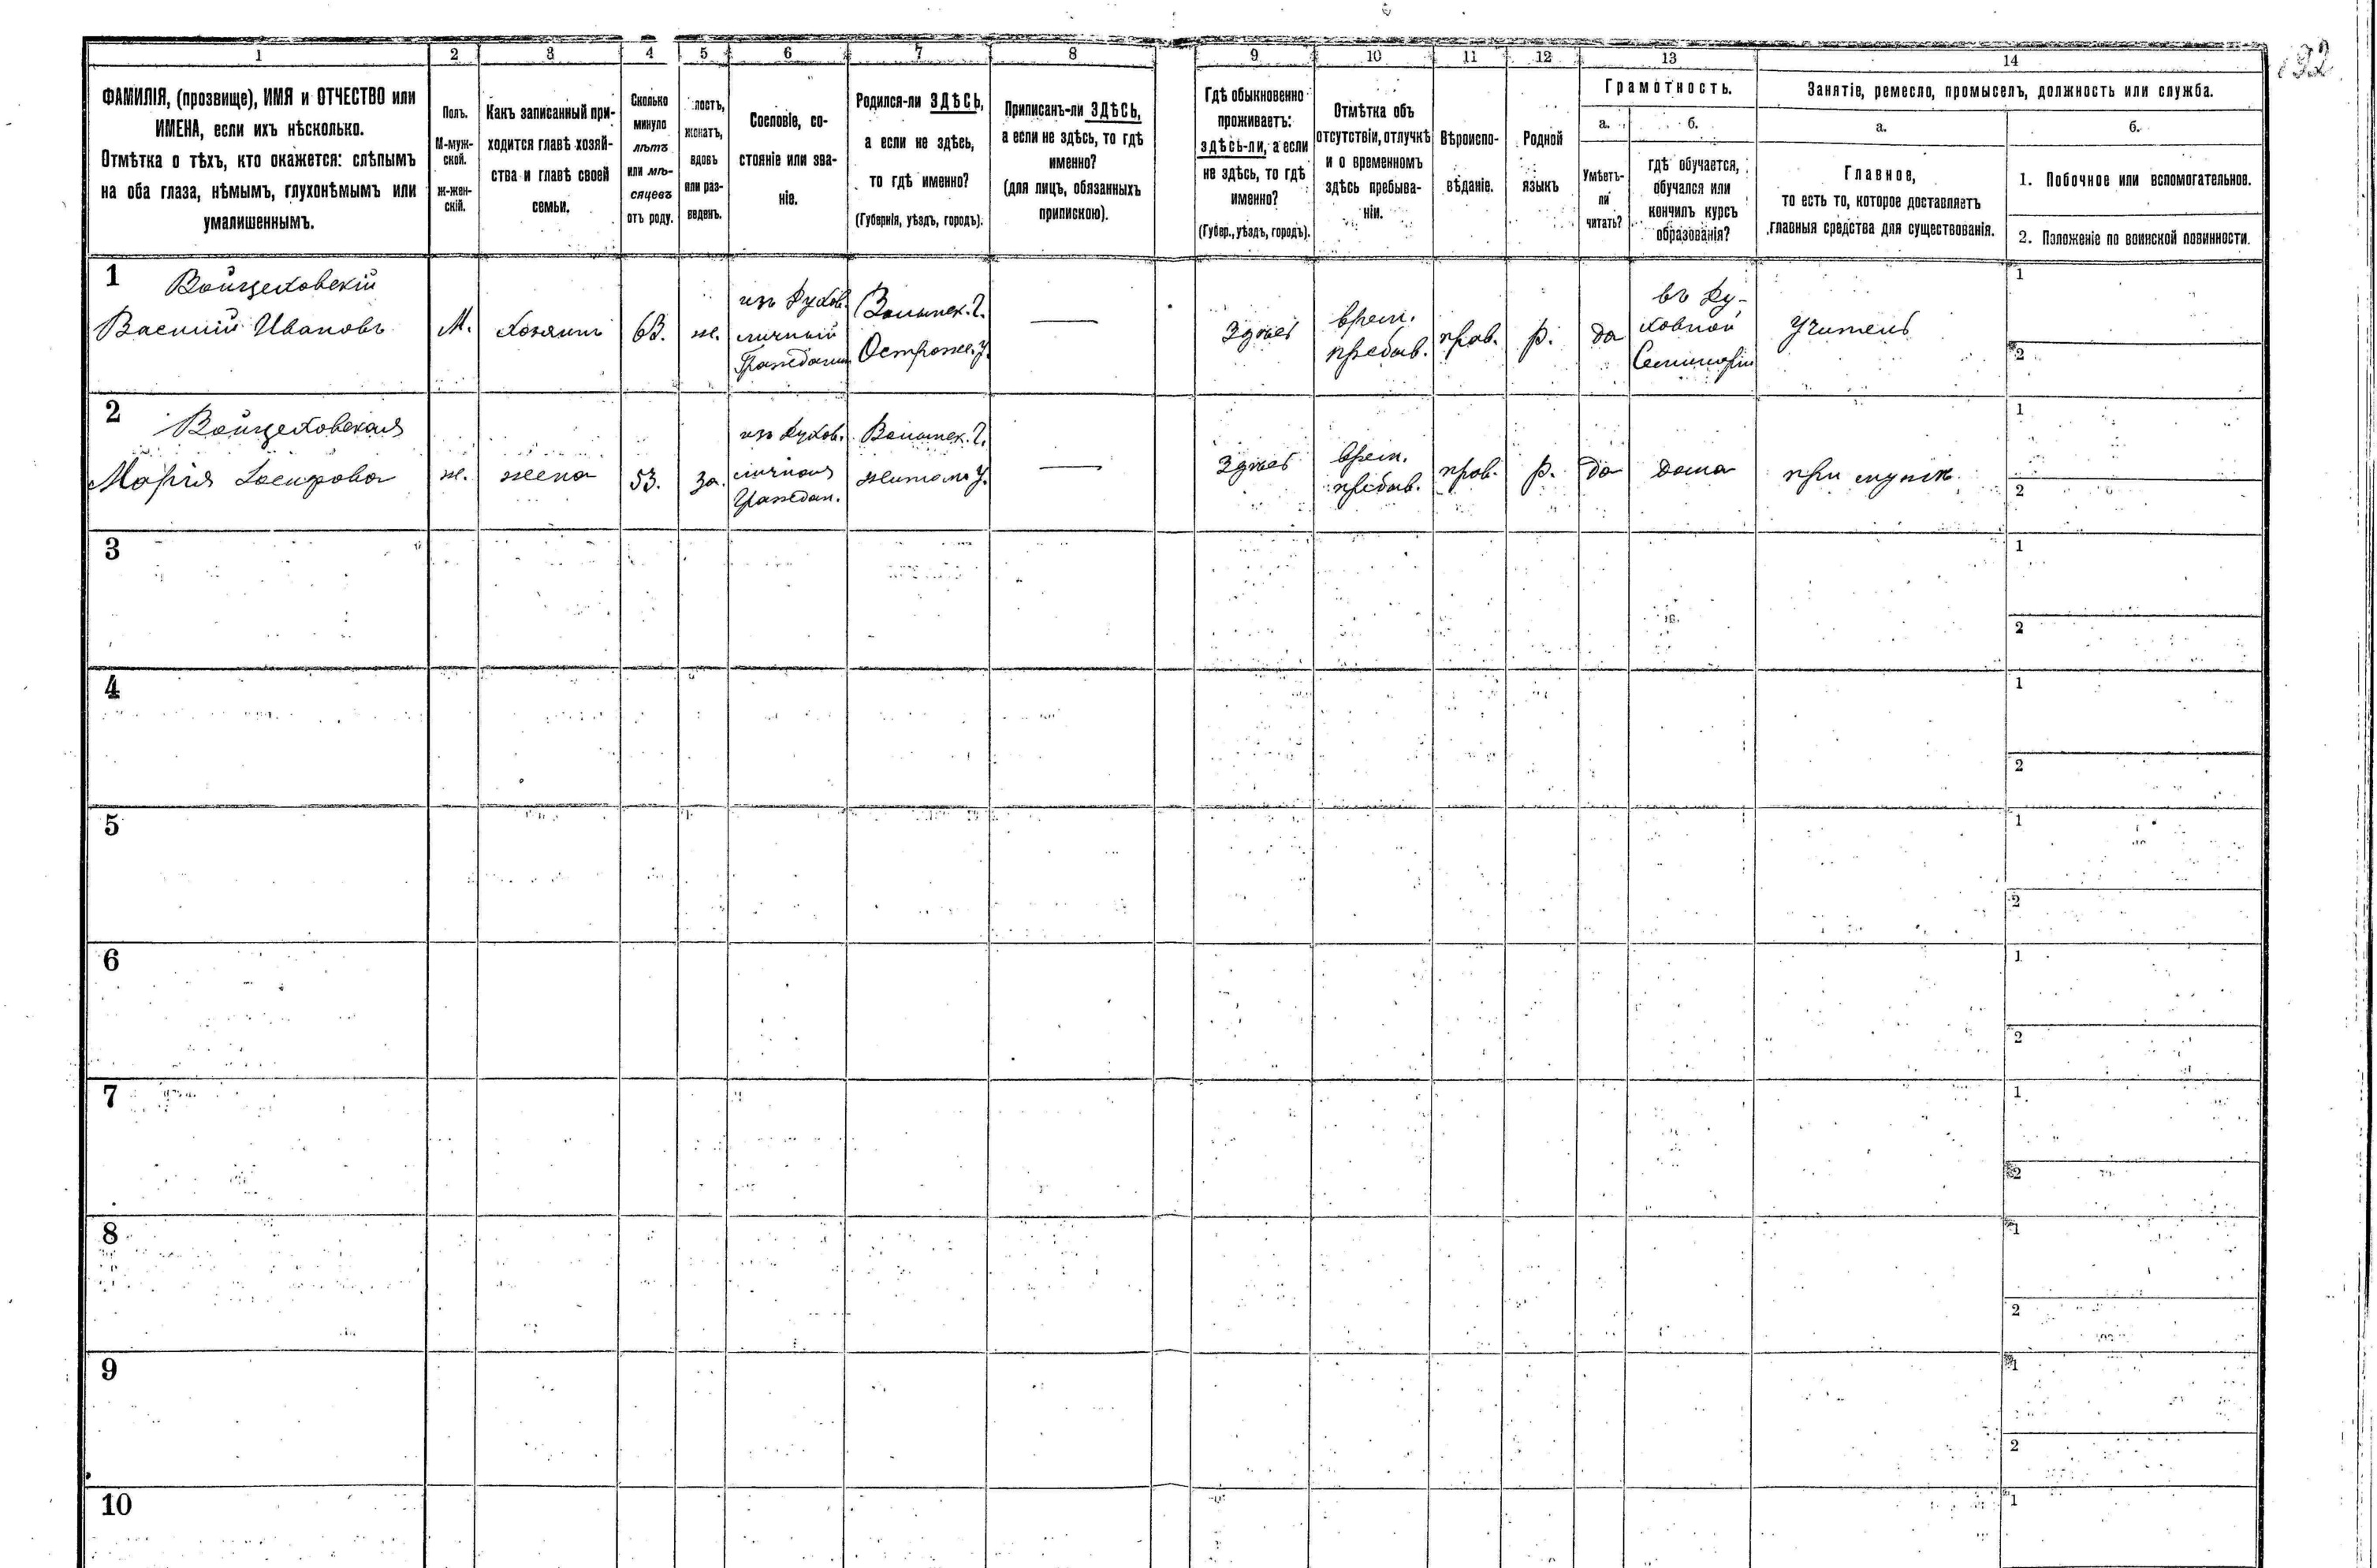 192
1 2 3 4 5 6 7 8 9 10 11 12 13 14
ФАМИЛІЯ, (прозвище), ИМЯ и ОТЧЕСТВО или
ИМЕНА, если ихъ нѣсколько.
Отмѣтка о тѣхъ, кто окажется: слѣпымъ
на оба глаза, нѣмымъ, глухонѣмымъ или
умалишеннымъ.
Полъ.
М-муж-
ской.
Ж-жен-
скій.
Какъ записанный при-
ходится главѣ хозяй-
ства и главѣ своей
семьи.
Сколько
минуло
лѣтъ
или мѣ-
сяцевъ
отъ роду.
лостъ,
женатъ,
вдовъ
или раз-
веденъ.
Сословіе, со-
стояніе или зва-
ніе.
Родился-ли ЗДѢСЬ,
а если не здѣсь,
то гдѣ именно?
(Губернія, уѣздъ, городъ).
Приписанъ-ли ЗДѢСЬ,
а если не здѣсь, то гдѣ
именно?
(для лицъ, обязанныхъ
припискою).
Гдѣ обыкновенно
проживаетъ:
здѣсь-ли, а если
не здѣсь, то гдѣ
именно?
(Губер., уѣздъ, городъ).
Отмѣтка объ
отсутствіи, отлучкѣ
и о временномъ
здѣсь пребыва-
ніи.
Вѣроиспо-
вѣданіе.
Родной
языкъ
Грамотность.
а.
Умѣетъ-
ли
читать?
б.
гдѣ обучается,
обучался или
кончилъ курсъ
образованія?
Занятіе, ремесло, промыселъ, должность или служба.
а.
Главное,
то есть то, которое доставляетъ
главныя средства для существованія.
б.
1. Побочное или вспомогательное.
2. Положеніе по воинской повинности.
1
Войцеховскій
Василій Ивановъ
М.
хозяинъ
63.
ж.
изъ духов.
личный
Гражданин
Волынск. Г.
Острож. у.
—
Здѣсь
врем.
пребыв.
прав.
р.
да
въ Ду-
ховной
Семинаріи
Учитель
1
2
2
Войцеховская
Марія
ж.
жена
53.
за.
изъ духов.
личная
Граждан.
Волынск. Г.
житом. у.
—
Здѣсь
врем.
пребыв.
прав.
р.
да
дома
при мужѣ
1
2
3
1
2
4
1
2
5
1
2
6
1
2
7
1
2
8
1
2
9
1
2
10
1